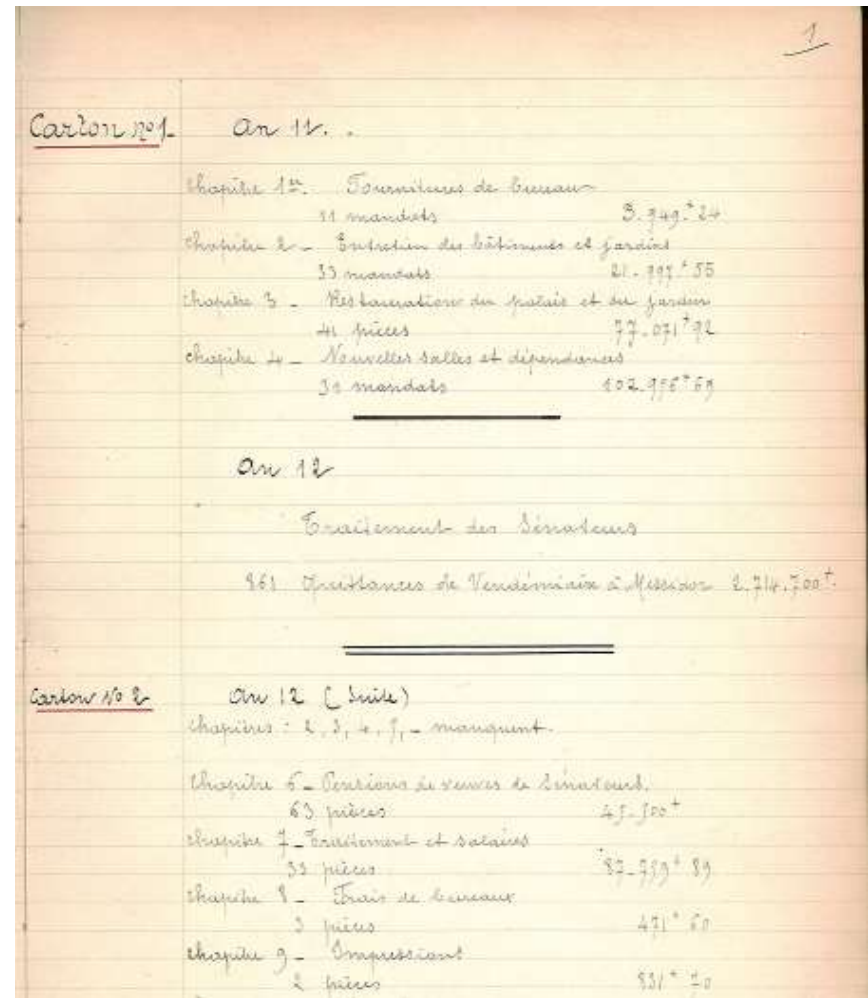 1
Carton no 1. An 11. .
Chapitre 1er. Fournitures de bureau
11 mandats 3.949.+ 24
Chapitre 2 - Entretien des bâtiments et jardins
33 mandats
Chapitre 3 - Restauration du palais et du jardin
41 pièces 77.071+92
Chapitre 4 - Nouvelles salles et dépendances
31 mandats
An 12
Traitement des Sénateurs
861 Quittances de Vendémiaire à Messidor 2.714.700+.
Carton No 2 An 12 (Suite)
Chapitres : 2, 3, 4, 5, - manquent.
Chapitre 6 - Pensions de veuves de Sénateurs.
63 pièces 45.500+
Chapitre 7 - Traitement et salaires
33 pièces 89
Chapitre 8 - Frais de bureaux
3 pièces 471+ 60
Chapitre 9 - Impressions
2 pièces 831+